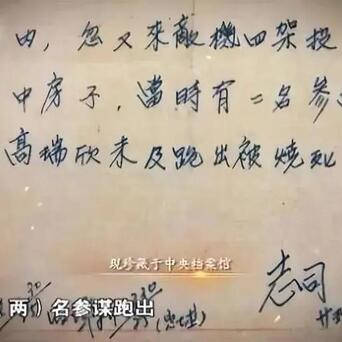 内，忽又來敵機四架投
中房子，當時有二名參
高瑞欣未及跑出被燒死
现珍藏于中央档案馆
志司
两）名参谋跑出